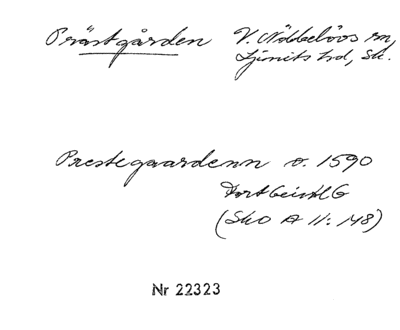 Prästgården V. Nöbbelövs sn,
Ljunits hd, Sk.
Prestegaardenn o. 1590
(SkO A II: 148)
Nr 22323